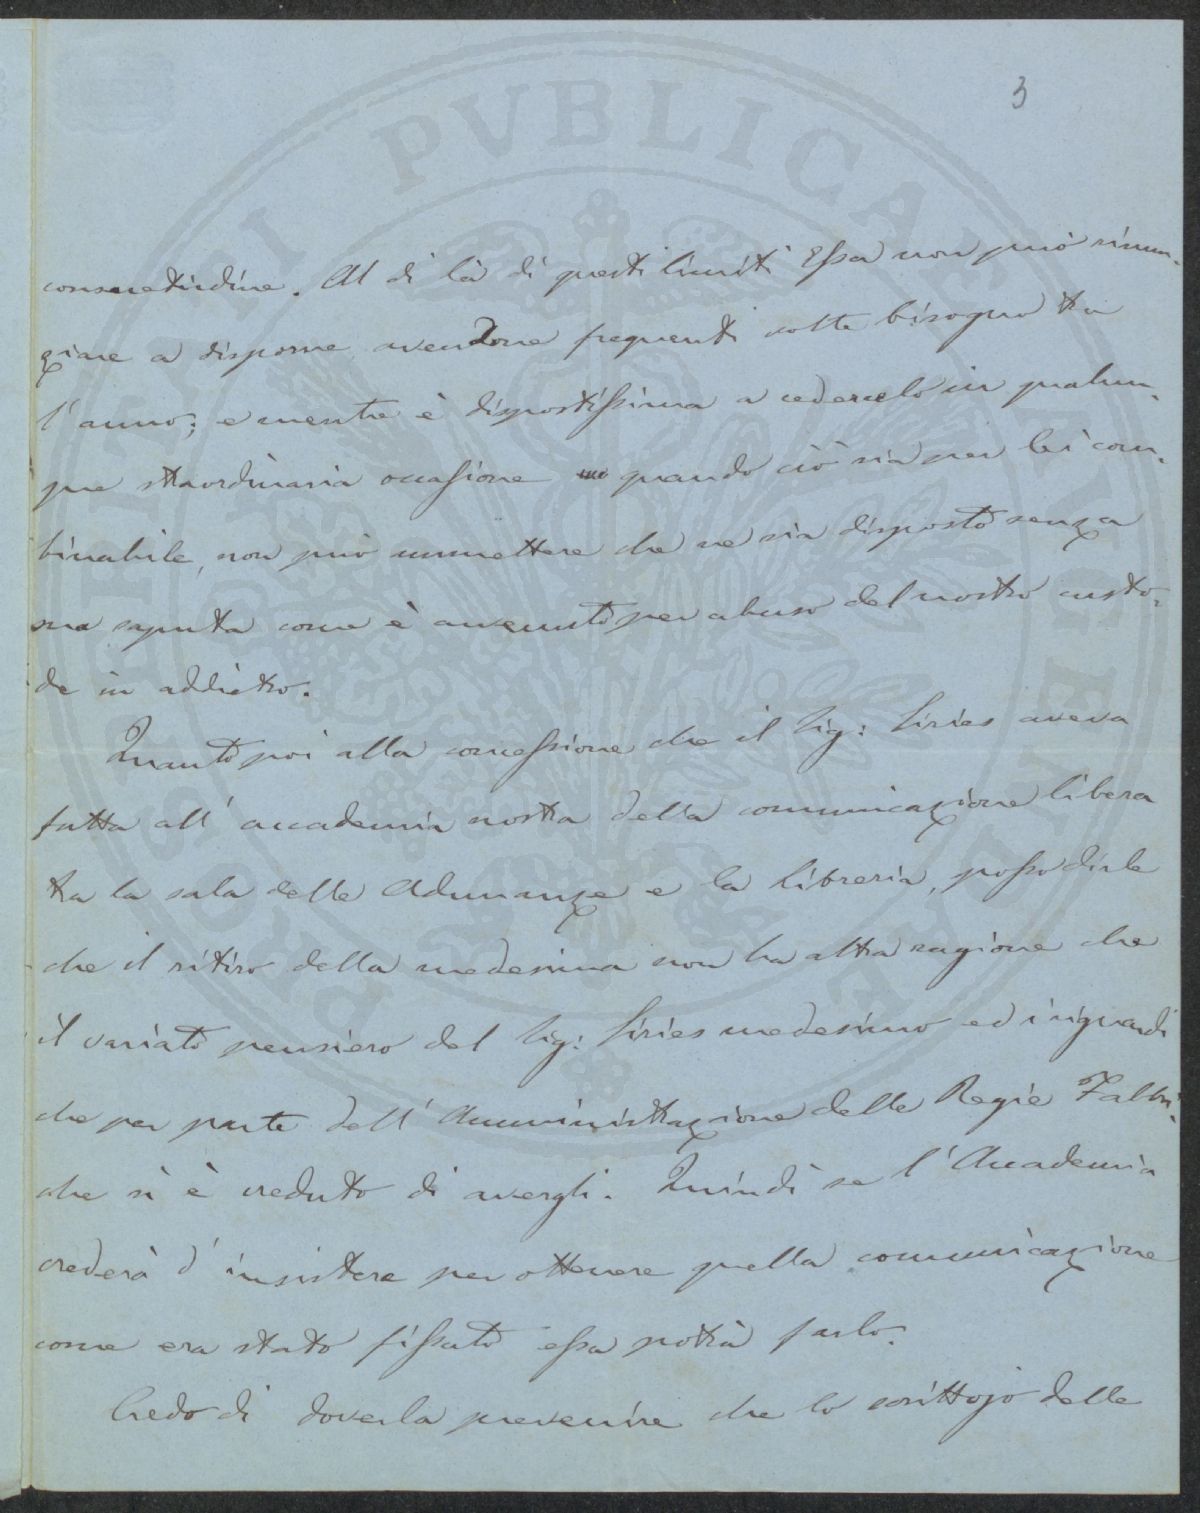 3
consuetudine. Al di là di questi limiti Essa non può rinun-
ziare a disporne avendone frequenti volte bisogno tra
l'anno; e mentre è dispostissima a cedercelo in qualun-
que straordinaria occasione quando ciò sia per lei com-
binabile, non può ammettere che ne sia disposto senza
sua saputa come è avvenuto per abuso del nostro custo-
de in addietro.
Quanto poi alla concessione che il Sig: Siries aveva
fatta all'accademia nostra della comunicazione libera
tra la sala delle Adunanze e la libreria, posso dirle
che il ritiro della medesima non ha altra ragione che
il variato pensiero del Sig: Siries medesimo ed i riguardi
che per parte dell'Amministrazione delle Regie Fabbri-
che si è creduto di avergli. Quindi se l'Accademia
crederà d'insistere per ottenere quella comunicazione
come era stato fissato essa potrà farlo.
Credo di doverla prevenire che lo scrittojo delle
PROSPERITATI PVBLICAE AVGENDAE